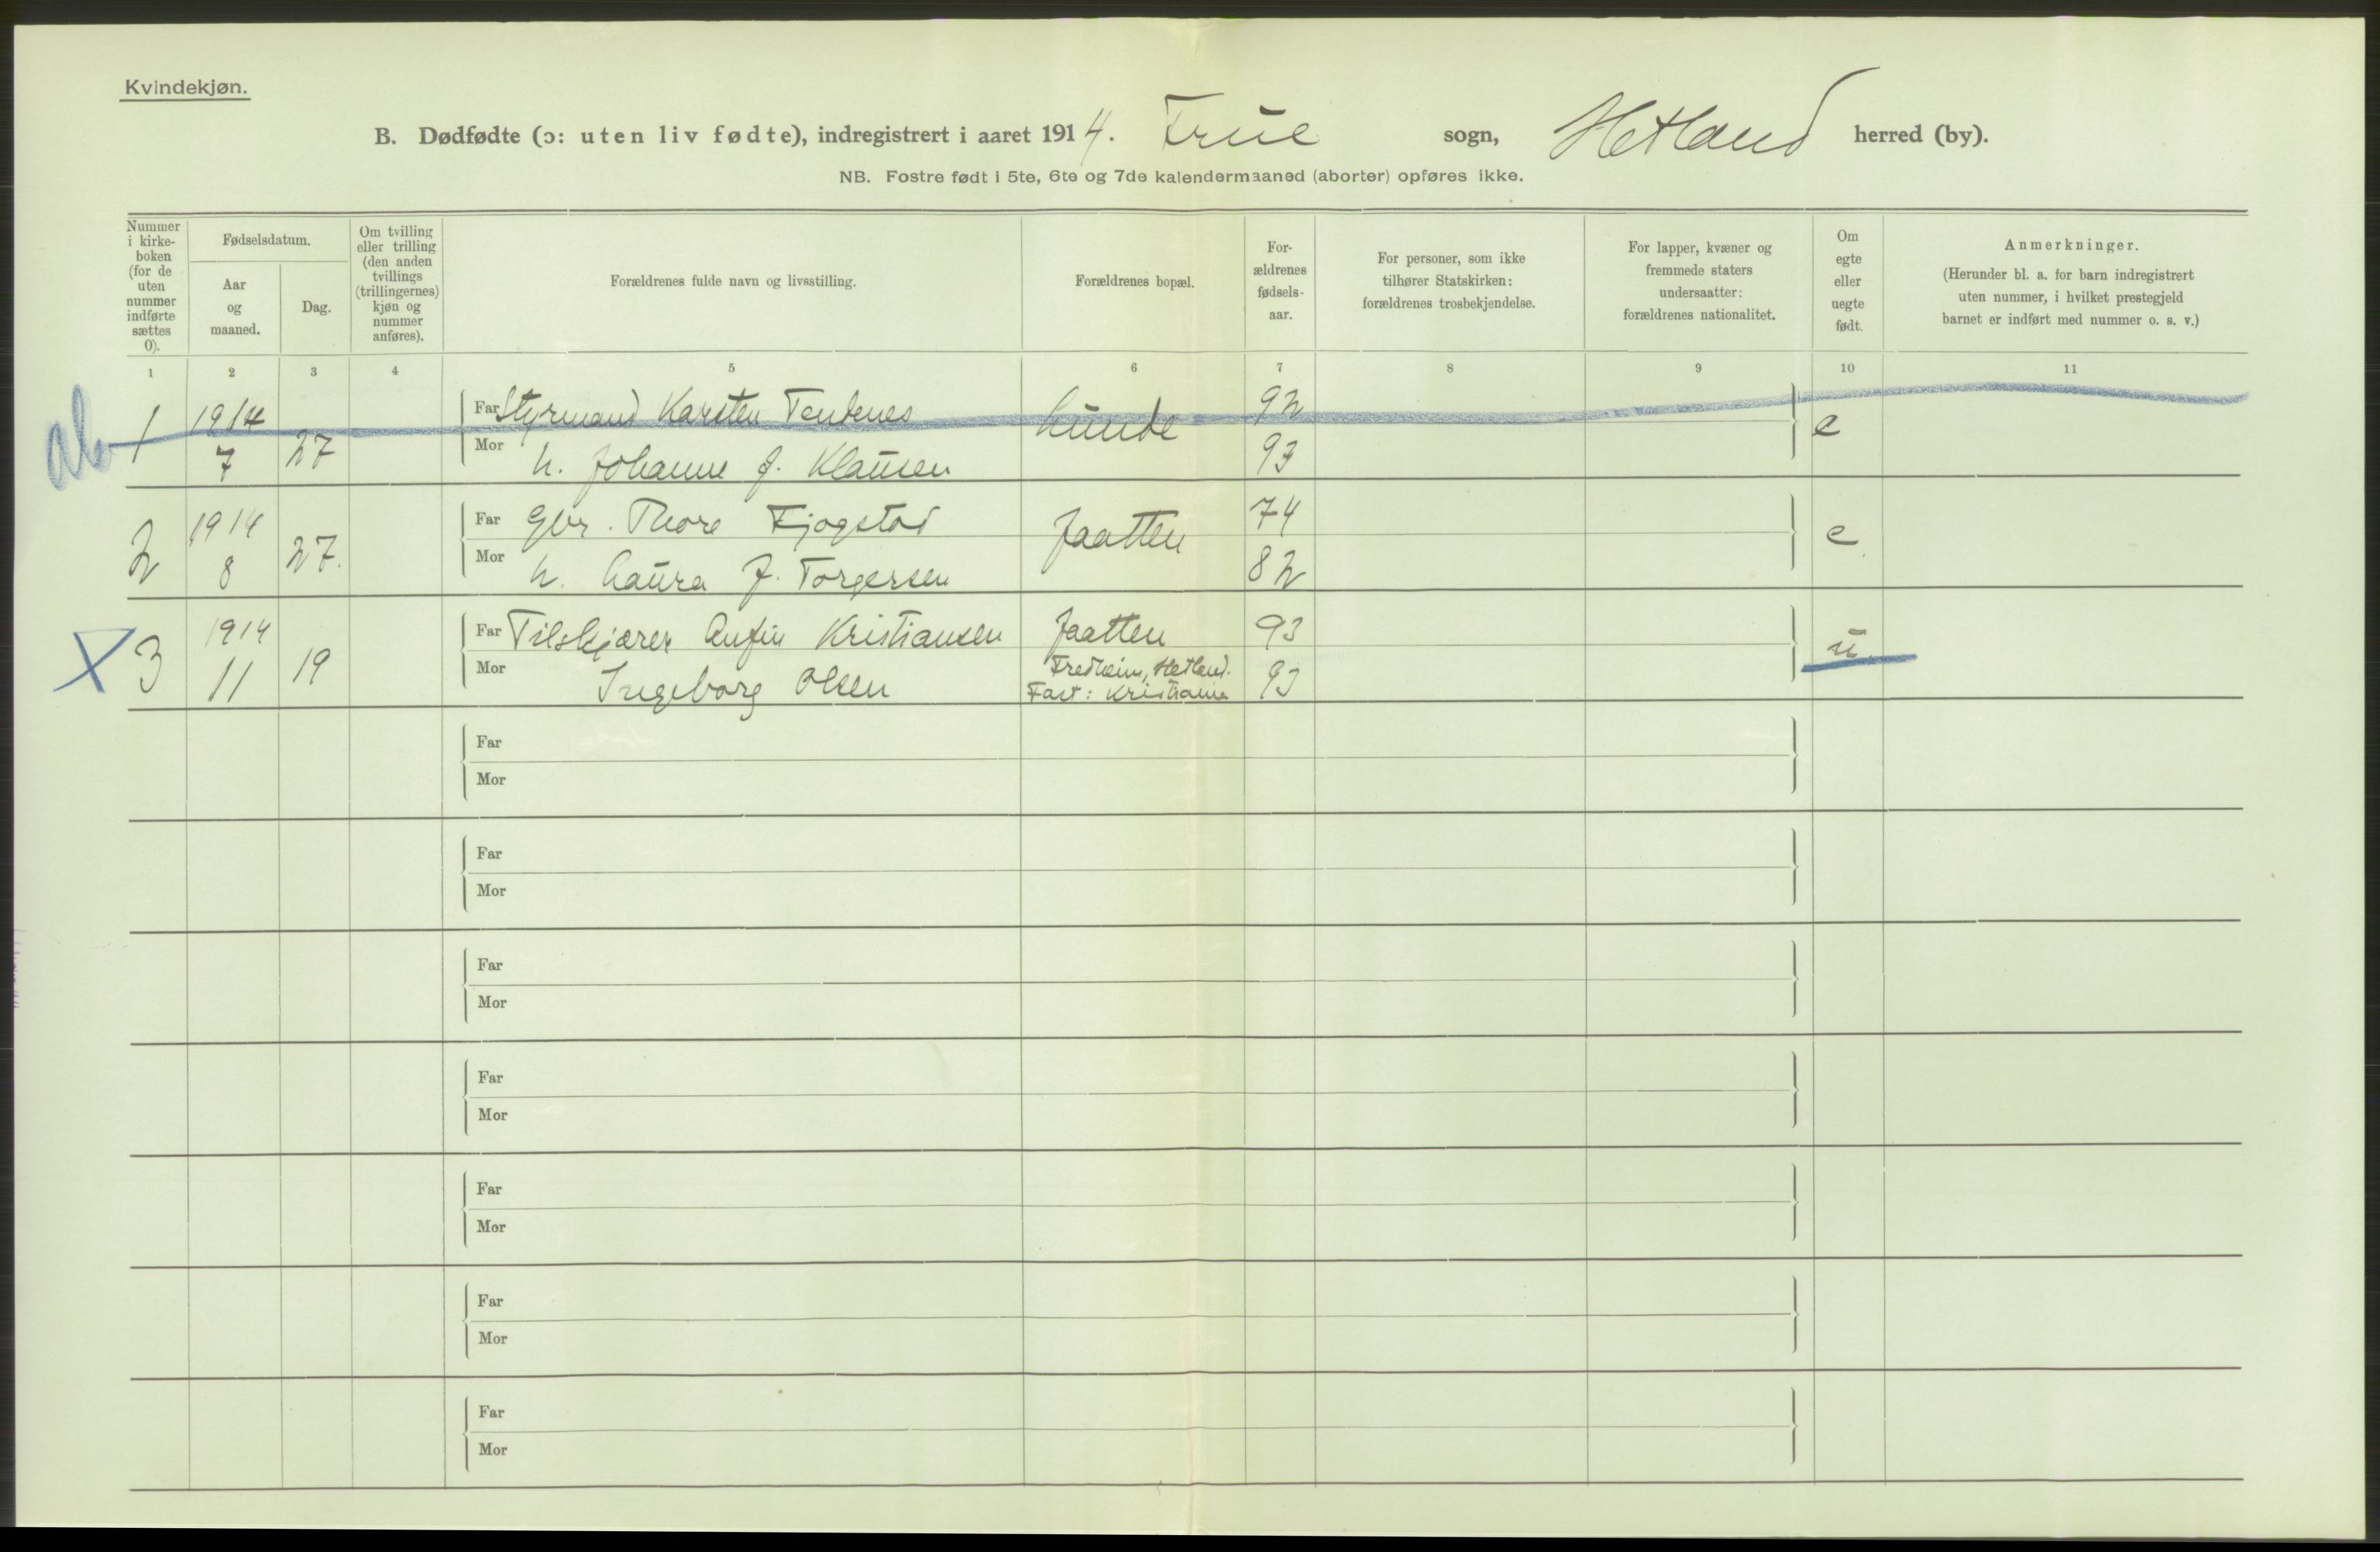 Kvindekjøn.
B. Dødfødte (ɔ: uten liv fødte), indregistrert i aaret 1914. Frue sogn, Hetland herred (by).
NB. Fostre født i 5te, 6te og 7de kalendermaaned (aborter) opføres ikke.
Nummer i kirke-boken (for de uten nummer indførte sættes 0).
Fødselsdatum.
Aar og maaned.
Dag.
Om tvilling eller trilling (den anden tvillings (trillingernes) kjøn og nummer anføres).
Forældrenes fulde navn og livsstilling.
Forældrenes bopæl.
For-ældrenes fødsels-aar.
For personer, som ikke tilhører Statskirken: forældrenes trosbekjendelse.
For lapper, kvæner og fremmede staters undersaatter: forældrenes nationalitet.
Om egte eller uegte født.
Anmerkninger.
(Herunder bl. a. for barn indregistrert uten nummer, i hvilket prestegjeld barnet er indført med nummer o. s. v.)
1 2 3 4 5 6 7 8 9 10 11
ab 1 1914 7 27 Far Styrmand Karsten Tendenes Lunde 92 e
Mor h. Johanne J. Klausen 93
2 1914 8 27. Far Gbr. Thore Fjogstad Jaatten 74 e
Mor h. Laura J. Torgersen 82
X 3 1914 11 19 Far Tilskjærer Anfin Kristiansen Jaatten 93 u.
Mor Ingeborg Olsen Fredheim, Hetland. Fast: Kristiania 93
Far
Mor
Far
Mor
Far
Mor
Far
Mor
Far
Mor
Far
Mor
Far
Mor